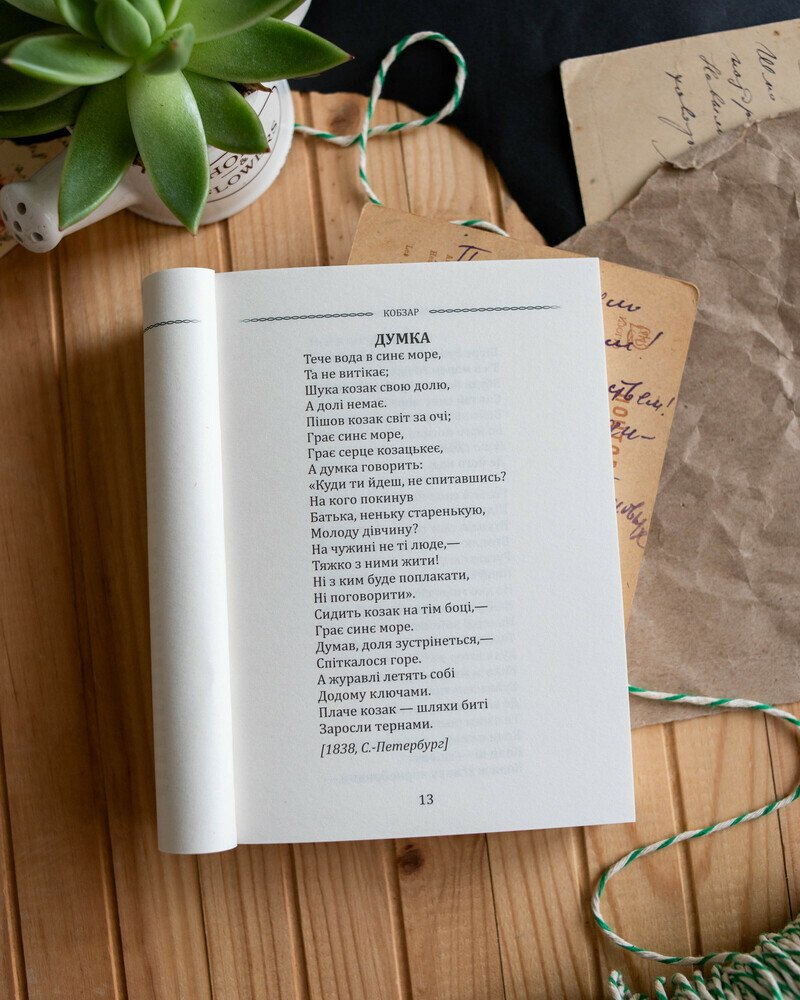 КОБЗАР
ДУМКА
Тече вода в синє море,
Та не витікає;
Шука козак свою долю,
А долі немає.
Пішов козак світ за очі;
Грає синє море,
Грає серце козацькеє,
А думка говорить:
«Куди ти йдеш, не спитавшись?
На кого покинув
Батька, неньку старенькую,
Молоду дівчину?
На чужині не ті люде,—
Тяжко з ними жити!
Ні з ким буде поплакати,
Ні поговорити».
Сидить козак на тім боці,—
Грає синє море.
Думав, доля зустрінеться,—
Спіткалося горе.
А журавлі летять собі
Додому ключами.
Плаче козак — шляхи биті
Заросли тернами.
[1838, С.-Петербург]
13